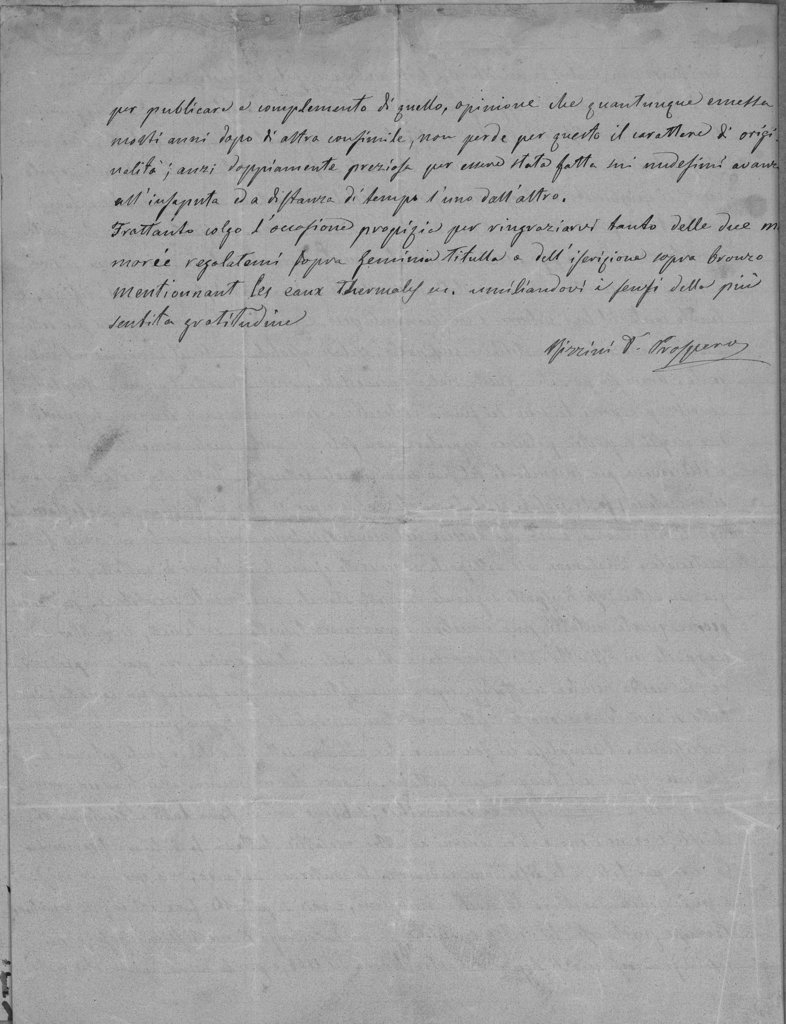 per publicare a complemento di quello, opinione che quantunque emessa
molti anni dopo di altra consimile, non perde per questo il carattere di origi-
nalità; anzi doppiamente preziosa per essere stata fatta sui medesimi avanzi
all'insaputa ed a distanza di tempo l'uno dall'altro.
Frattanto colgo l'occasione propizia per ringraziarvi tanto delle due me
morée regalatemi sopra Geminia Titulla e dell'iscrizione sopra bronzo
mentionnant les eaux thermales ec. umiliandovi i sensi della più
sentita gratitudine
Prospero